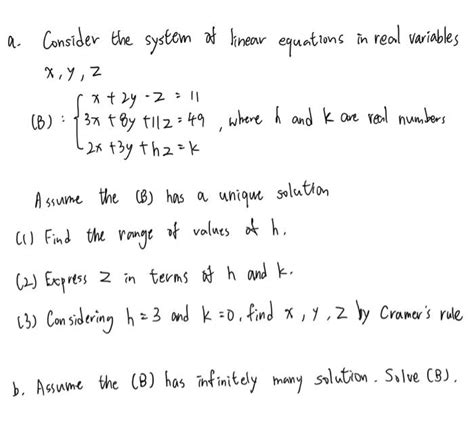 a. Consider the system of linear equations in real variables
x, y, z
(B) : { x + 2y - z = 11
3x + 8y + 11z = 49 , where h and k are real numbers
2x + 3y + hz = k
Assume the (B) has a unique solution
(1) Find the range of values of h.
(2) Express z in terms of h and k.
(3) Considering h = 3 and k = 0, find x, y, z by Cramer's rule
b. Assume the (B) has infinitely many solution. Solve (B).